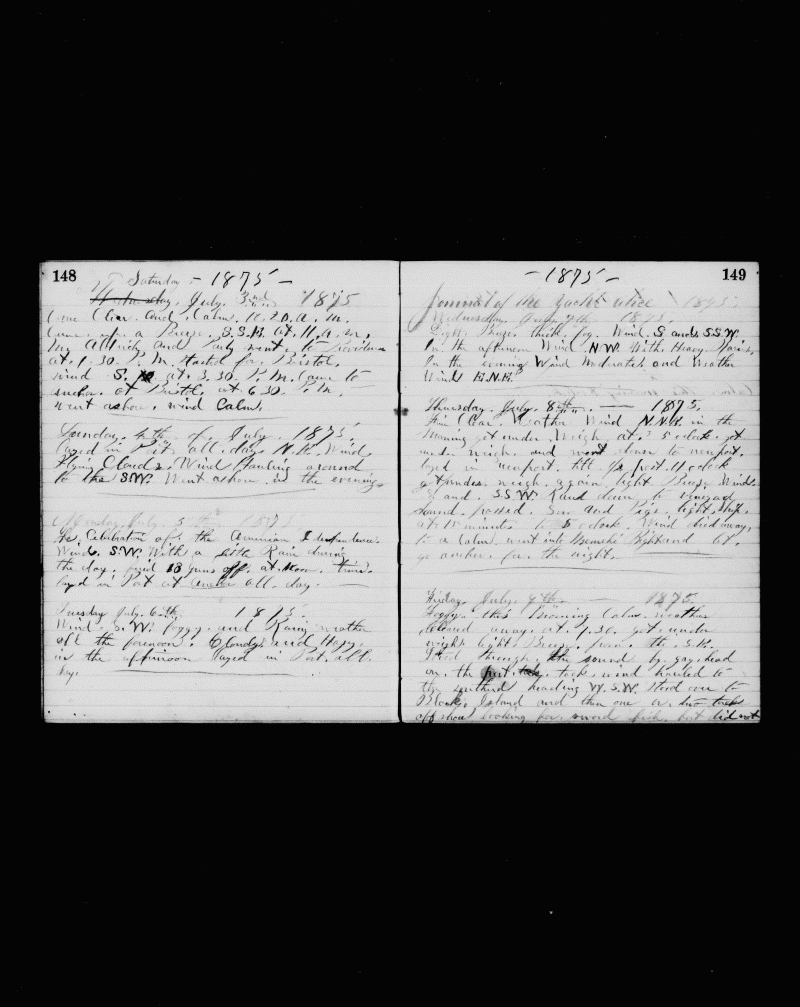 148
Saturday - 1875 -
July. 3rd. 1875
Clear. And. Calm. 10.20. A. M.
Came up a Breeze. S.S.W. at. 11. A. M.
Mr Aldrich and went. to Providence
at. 1.30. P. M. started for. Bristol.
wind S. at. 3.30. P. M. Came to
anchor. at Bristol. at 6.30. P. M.
went ashore. wind Calm.
Sunday. 4th. of. July. 1875.
Layed in Port all. day. Wind.
Flying Clouds. Wind around
to the SW. Went ashore. in the evening
Monday. July. 5th 1875
The Celebration of. the American Independence.
Wind. S.W. With a little Rain during
the day. fired 13 guns off. at. Noon.
layd in Port at anchor all. day.
Tuesday July. 6th. 1875.
Wind. S.W. foggy. and Rainy weather
all the forenoon. Cloudy. and
in the afternoon layed in Port. all.
day.
- 1875 - 149
Journal of the Yacht Alice 1875.
Wednesday. July 7th 1875.
Light Breeze. thick. Fog. Wind. S and S.S.W.
In. the afternoon Wind. N.W. With. Heavy. Rain.
In the evening Wind Moderate. and Weather
Wind
Thursday. July. 8th. — 1875.
Clear. Weather Wind N.N.W. in the
Morning got under. Weigh at. 5 oclock. got
under weigh. and went down to newport.
layed in newport. till ½ past. 11 oclock
got under. weigh. again light Breeze Wind
S. and. S.S.W. Rund down. to vineyard
Sound. passed. Sow and Pigs. light. ship.
at. 10 minutes to 5 oclock. Wind died away.
to a Calm. went into Bight and
anchor. for. the night.
Friday. July. 9th. — 1875.
Foggy. this Morning Calm. weather
Cleared away. at. 1.30. got. under
weigh light. Breeze. from. the. S.W.
through. the sound by. gay. head
on. the port. tack. wind hauled to
the. heading W.S.W. stood over to
Block. Island and then one or. two tacks
off shore looking for. sword fish. but did not